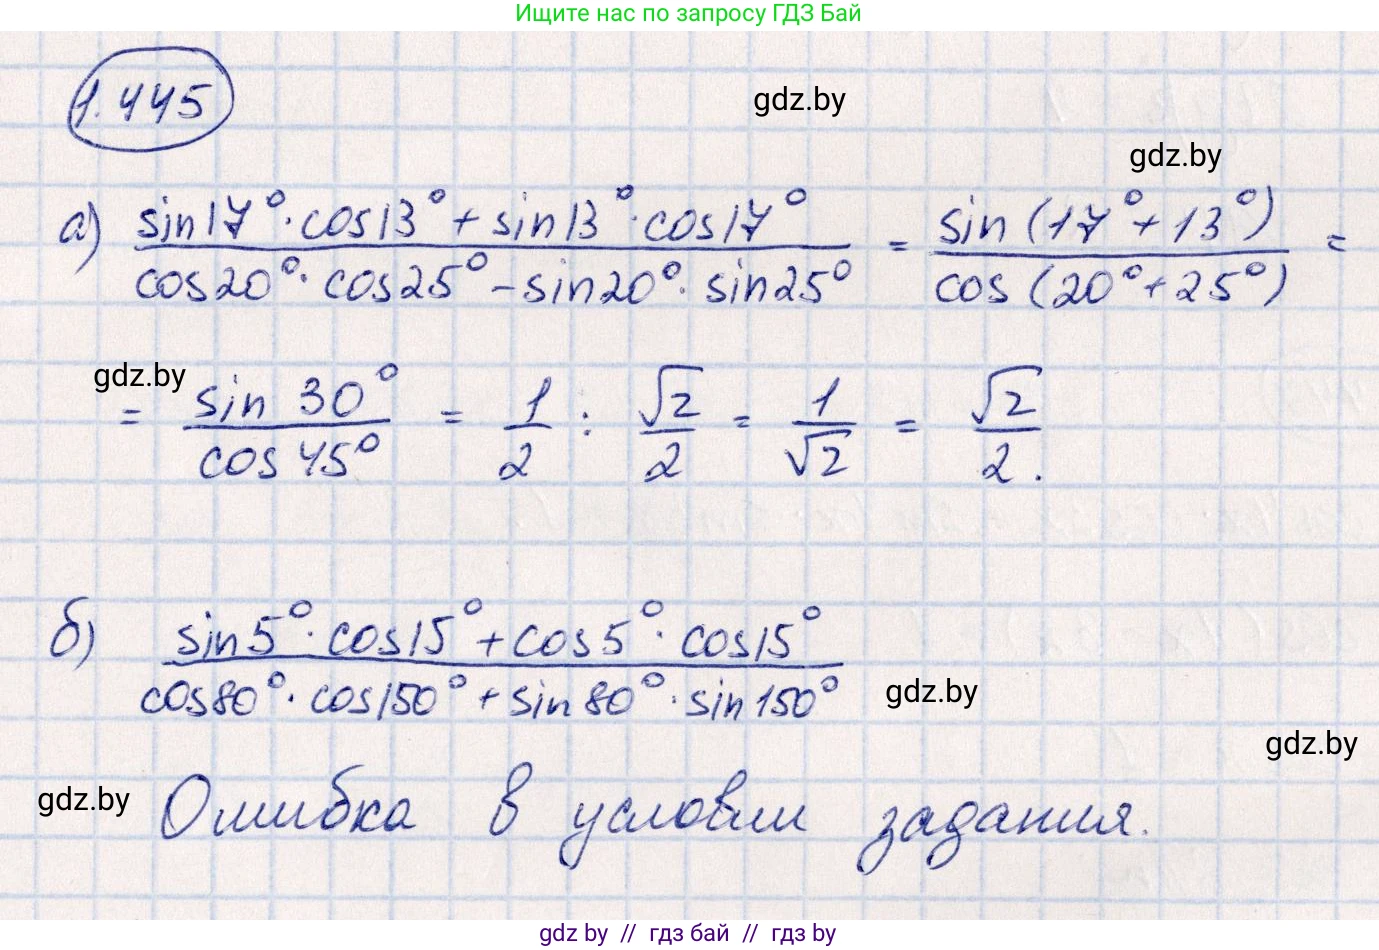 Ищите нас по запросу ГДЗ Бай
1.445
gdz.by
gdz.by
а) sin17°·cos13°+sin13°·cos17° / cos20°·cos25°-sin20°·sin25° = sin(17°+13°) / cos(20°+25°) =
gdz.by
= sin 30° / cos 45° = 1/2 : √2/2 = 1/√2 = √2/2.
б) sin5°·cos15°+cos5°·cos15° / cos80°·cos150°+sin80°·sin150°
gdz.by
gdz.by
gdz.by
Ошибка в условии задания.
gdz by // гдз бай // гдз by